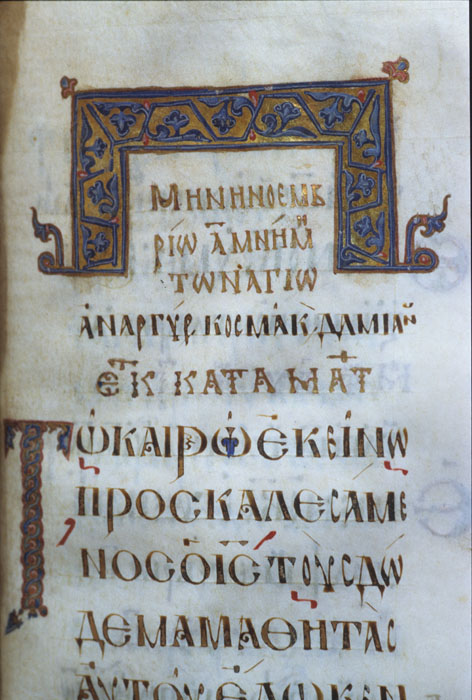 ΜΗΝΗΝΟΕΜΒ
ΡΙΩ Α ΜΝΗΜ
ΤΩΝ ΑΓΙΩ
ΑΝΑΡΓΥΡ ΚΟΣΜΑ Κ, ΔΑΜΙΑΝ
ΕΚ ΚΑΤΑ ΜΑΤ
ΤΩ ΚΑΙΡΩ ΕΚΕΙΝΩ
ΠΡΟΣΚΑΛΕΣΑΜΕ
ΝΟΣ Ο ΙΣ ΤΟΥΣ ΔΩ
ΔΕΜΑ ΜΑΘΗΤΑΣ
ΑΥΤΟΥ ΕΔΩΚΕΝ